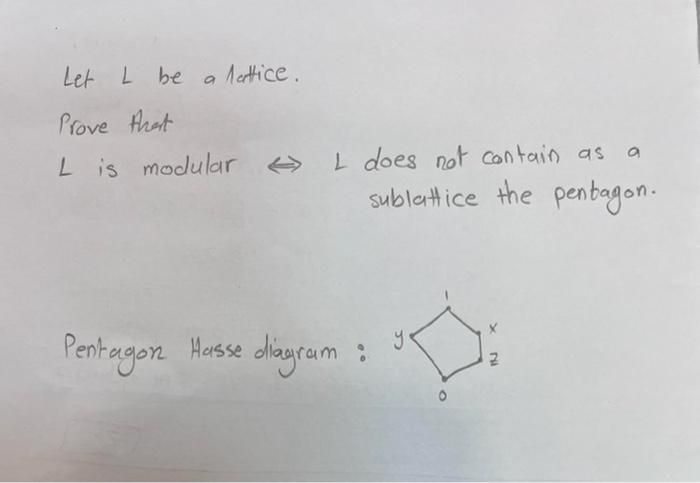 Let L be a lattice.
Prove that
L is modular ⇔ L does not contain as a
sublattice the pentagon.
1
y x
z
Pentagon Hasse diagram :
0